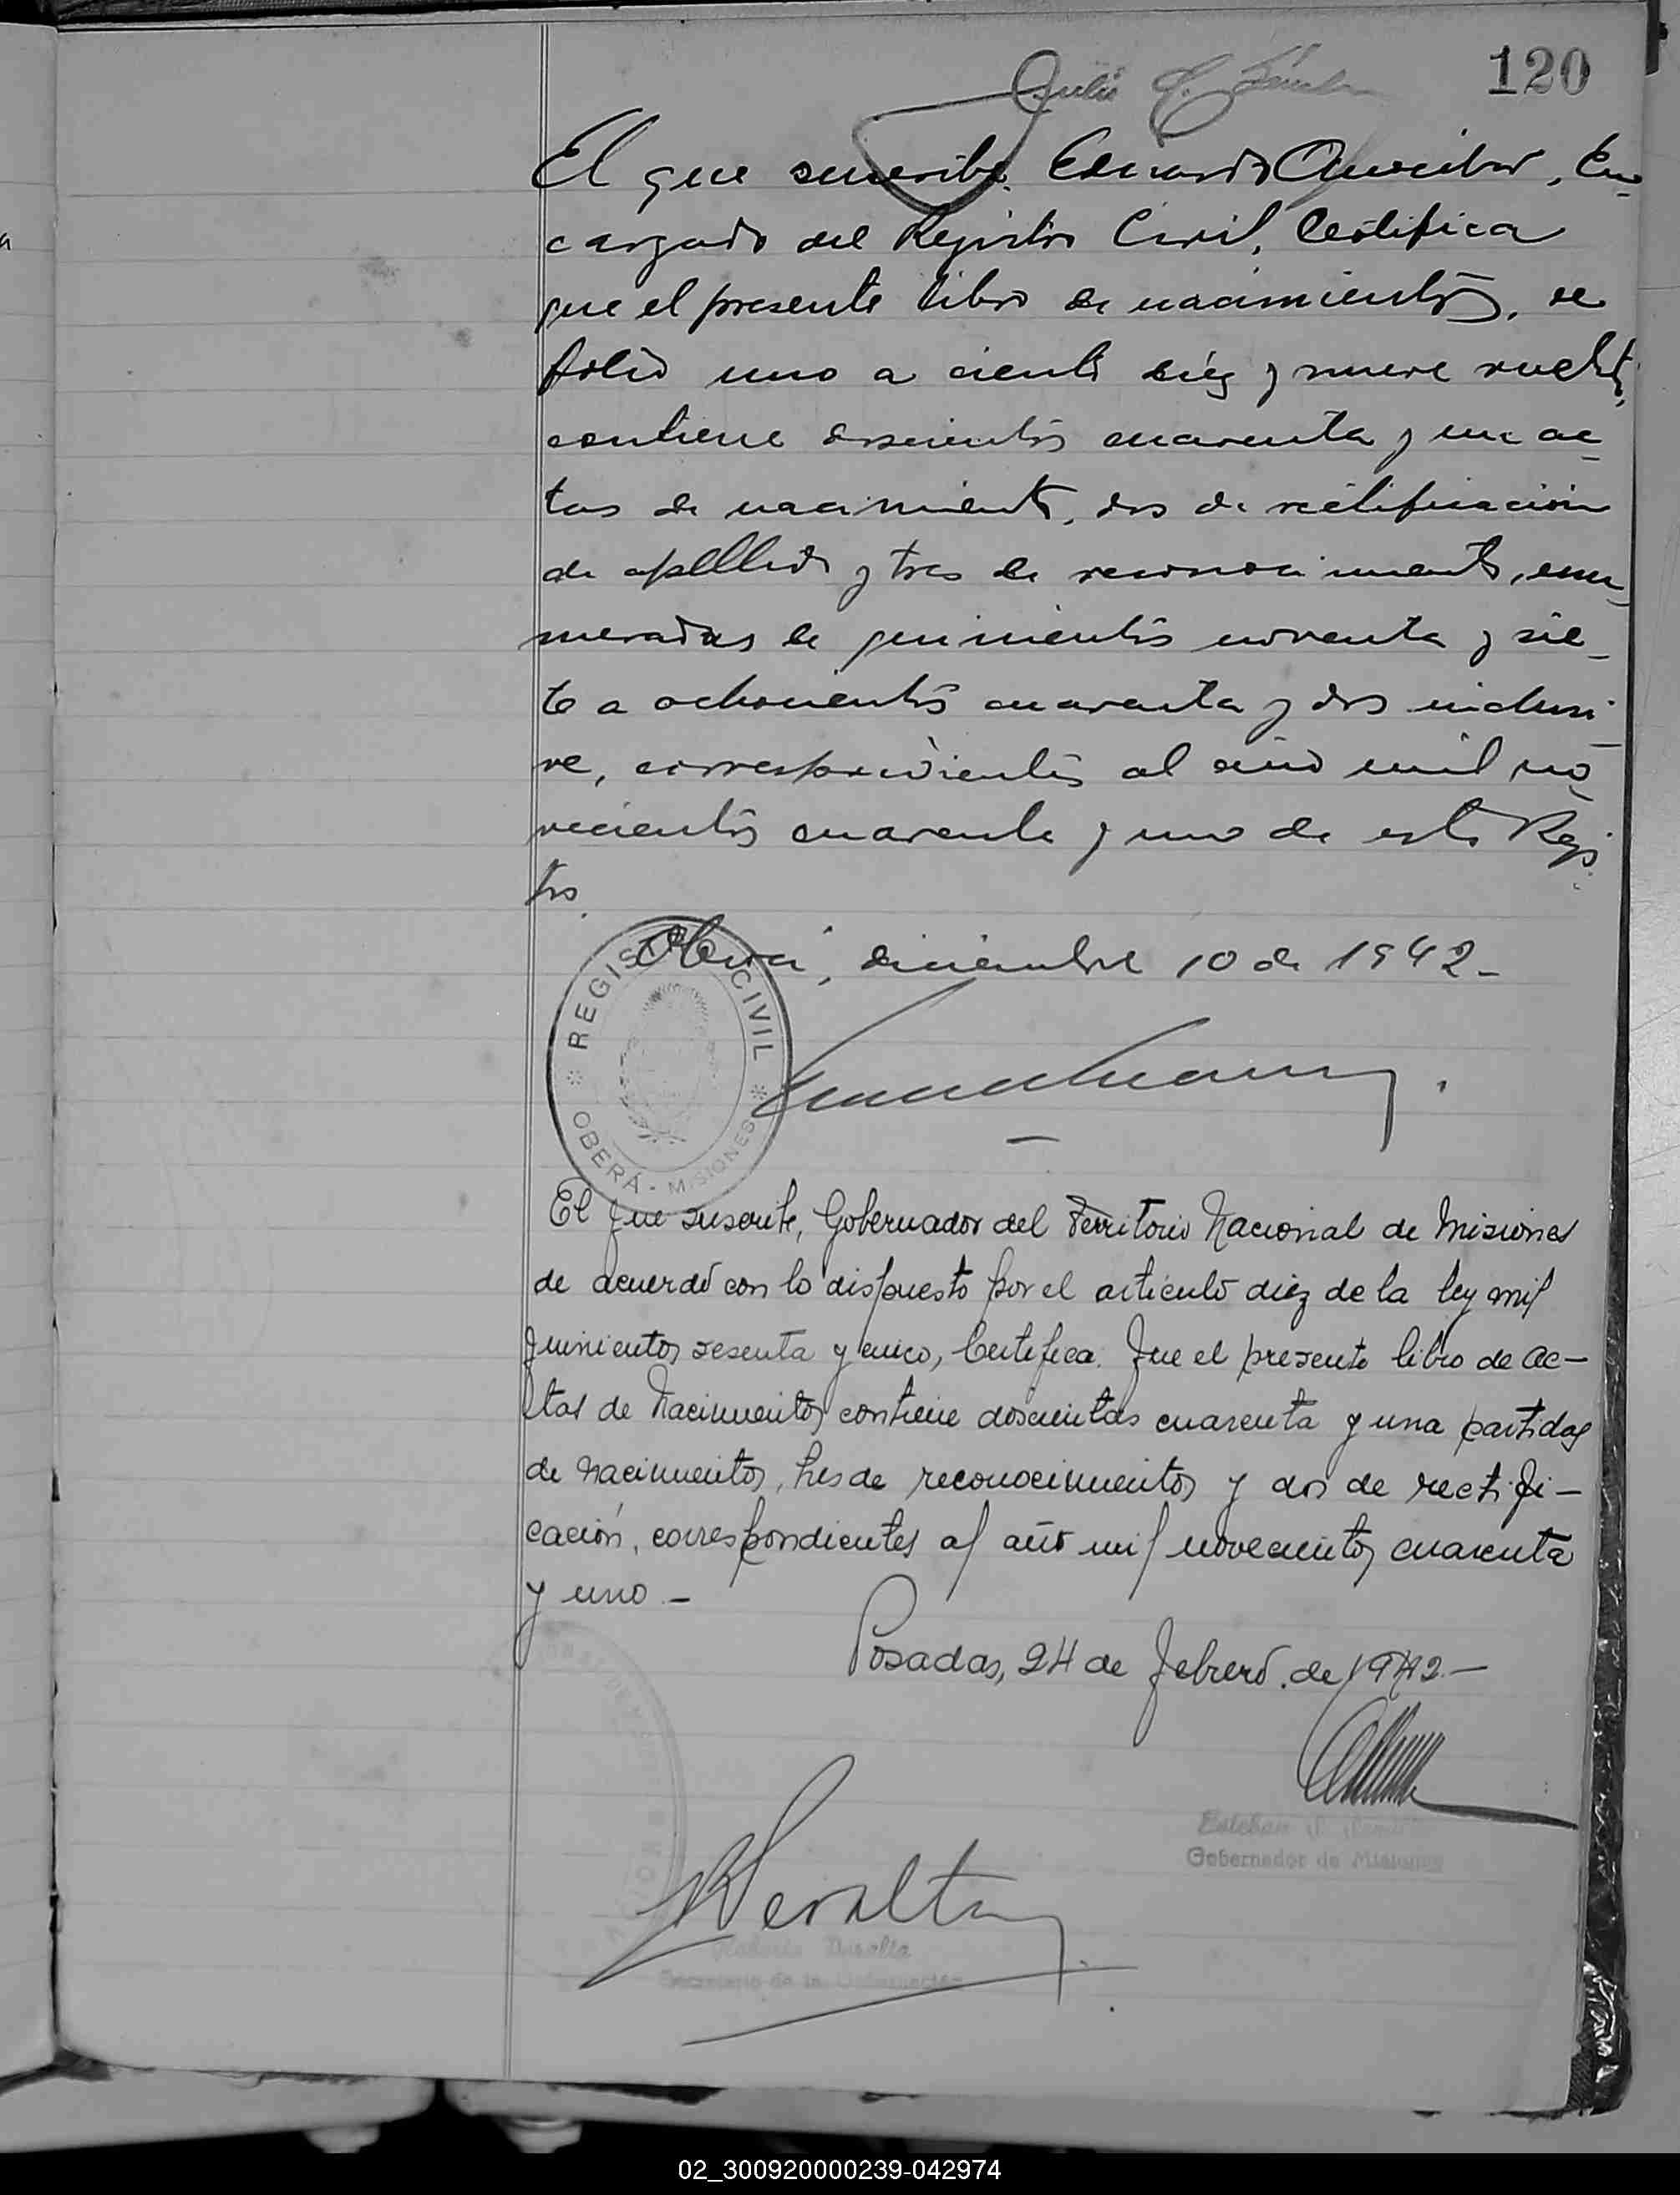 120
Julio
El que suscribe Eduardo, En-
cargado del Registro Civil, Certifica
que el presente libro de nacimientos, de
folio uno a ciento diez y nueve vuelta,
contiene doscientos cuarenta y una ac-
tas de nacimiento, dos de rectificación
de apellido y tres de reconocimiento, enu-
meradas de quinientos noventa y sie-
te a ochocientos cuarenta y dos inclusi-
ve, correspondientes al año mil no-
vecientos cuarenta y uno de este Regis-
tro.
Oberá, diciembre 10 de 1942-
REGISTRO CIVIL
OBERÁ - MISIONES
El que suscribe, Gobernador del Territorio Nacional de Misiones
de acuerdo con lo dispuesto por el artículo diez de la ley mil
quinientos sesenta y cinco, Certifica: Que el presente libro de ac-
tas de Nacimientos contiene doscientas cuarenta y una partidas
de nacimientos, tres de reconocimientos y dos de rectifi-
cación, correspondientes al año mil novecientos cuarenta
y uno.-
Posadas, 24 de febrero de 1942.-
Esteban
Gobernador de Misiones
Peralta
Peralta
Secretario de la Gobernación
02_300920000239-042974